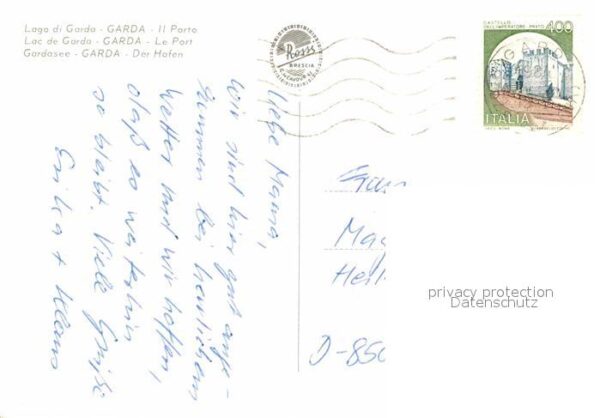 Lago di Garda - GARDA - Il Porto
Lac de Garda - GARDA - Le Port
Gardasee - GARDA - Der Hafen
Roni
BRESCIA
CASTELLO
DELL'IMPERATORE - PRATO
400
ITALIA
Liebe Mama,
wir sind hier gut ange-
kommen bei herrlichem
Wetter und wir hoffen,
daß es weiterhin
so bleibt. Viele Grüße
Erika + Klaus
Ma
Heil
D-850
privacy protection
Datenschutz